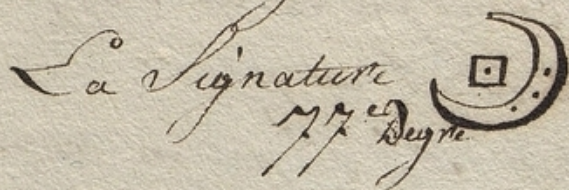 La Signature
77e Degré